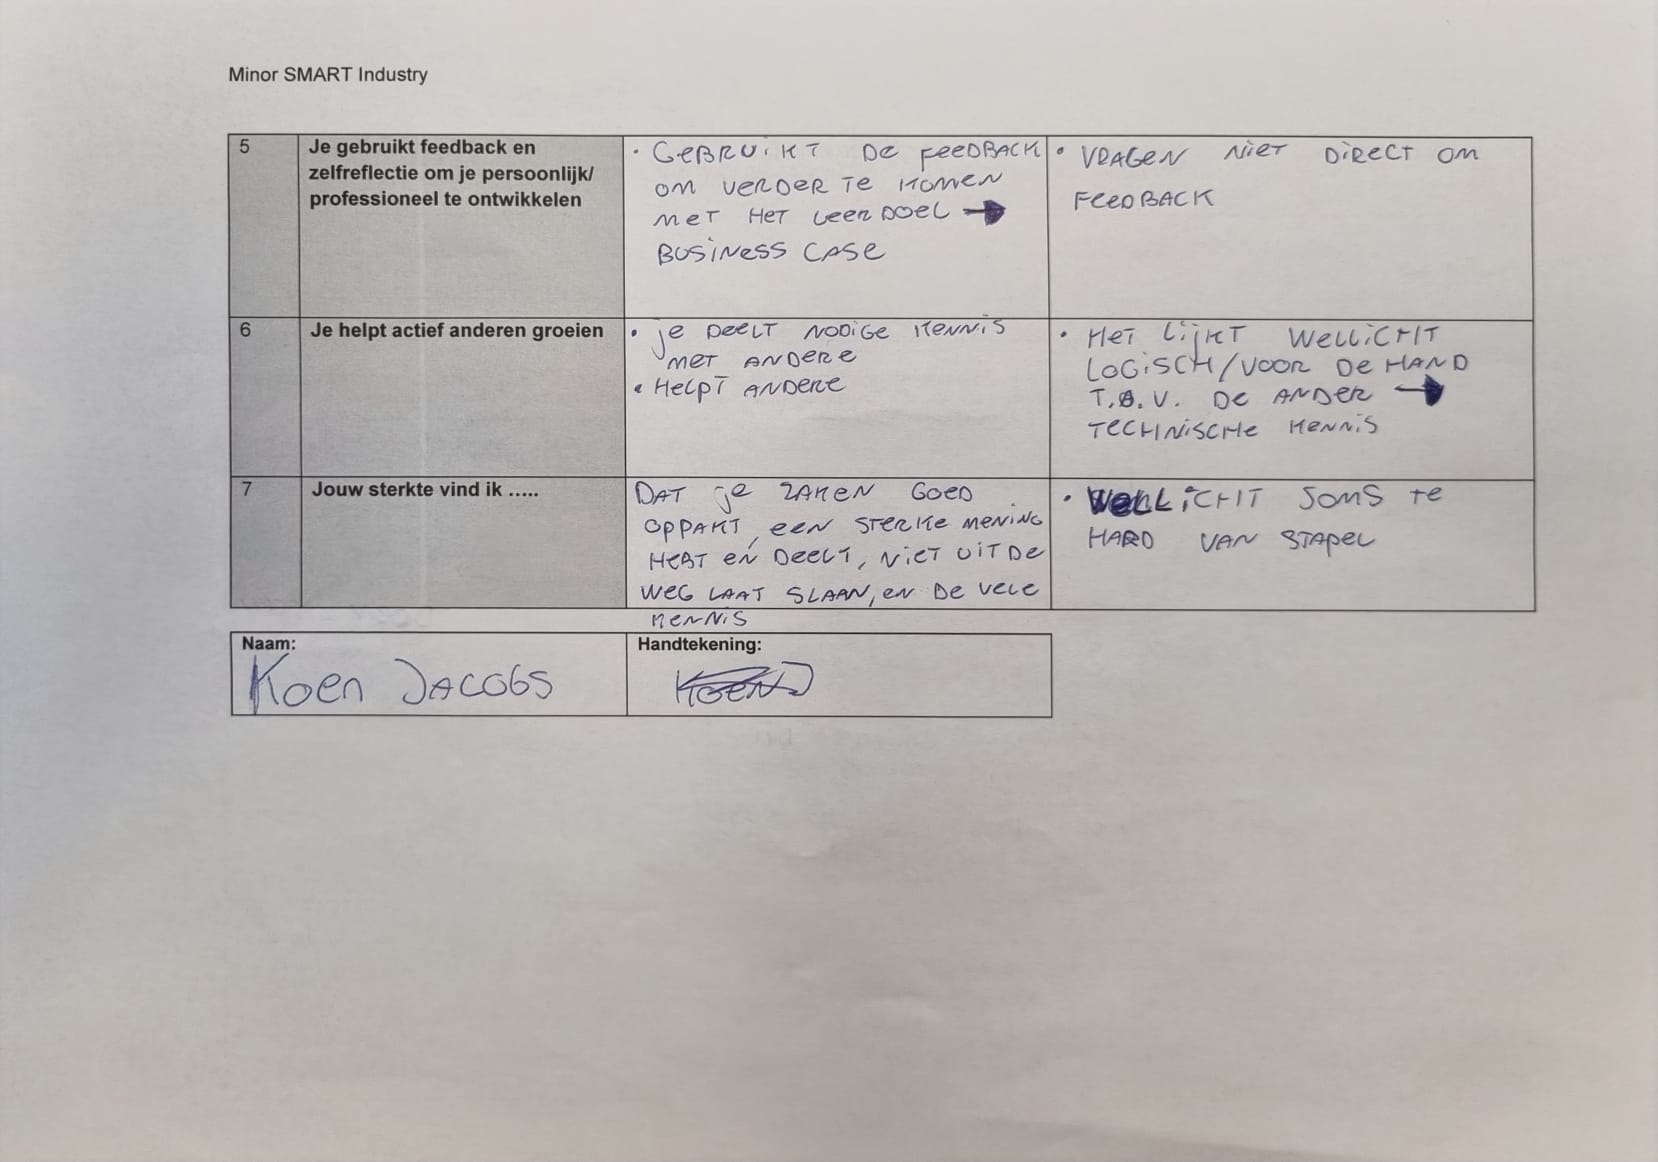 Minor SMART Industry
5
Je gebruikt feedback en
zelfreflectie om je persoonlijk/
professioneel te ontwikkelen
• GEBRUIKT DE FEEDBACK
OM VERDER TE KOMEN
MET HET LEERDOEL →
BUSINESS CASE
• VRAGEN NIET DIRECT OM
FEEDBACK
6
Je helpt actief anderen groeien
• JE DEELT NODIGE KENNIS
MET ANDERE
• HELPT ANDERE
• HET LIJKT WELLICHT
LOGISCH/VOOR DE HAND
T.O.V. DE ANDER →
TECHNISCHE KENNIS
7
Jouw sterkte vind ik .....
DAT JE ZAKEN GOED
OPPAKT, EEN STERKE MENING
HEBT EN DEELT, NIET UIT DE
WEG LAAT SLAAN, EN DE VELE
KENNIS
• WELLICHT SOMS TE
HARD VAN STAPEL
Naam:
KOEN JACOBS
Handtekening:
KOEN J